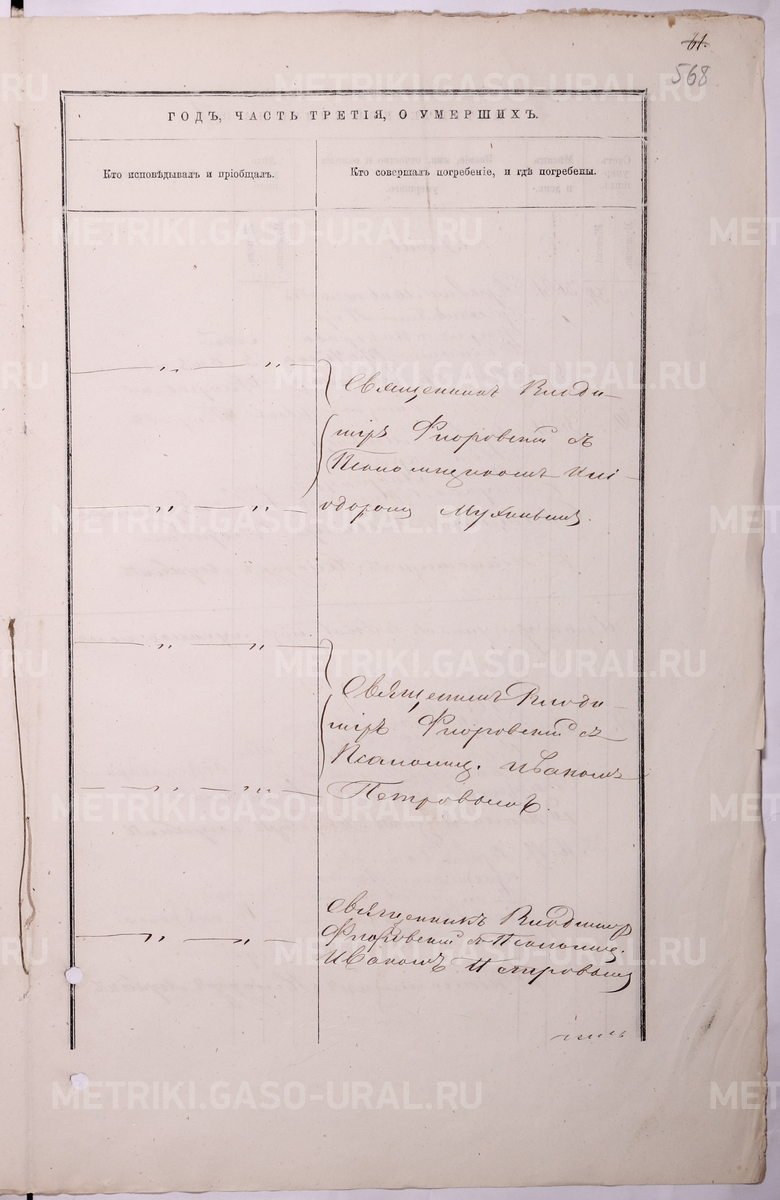 61.
568
ГОДЪ, ЧАСТЬ ТРЕТІЯ, О УМЕРШИХЪ.
Кто исповѣдывалъ и пріобщалъ.
Кто совершалъ погребеніе, и гдѣ погребены.
— „ — „ —
Священникъ Влади-
міръ Флоровскій съ
Псаломщикомъ Илі-
одоромъ
— „ — „ —
— „ — „ —
Священникъ Влади-
міръ Флоровскій съ
Псаломщ. Иваномъ
Петровымъ.
— „ — „ —
Священникъ Владиміръ
— „ — „ —
Флоровскій съ Псаломщ.
Иваномъ Петровымъ
METRIKI.GASO-URAL.RU